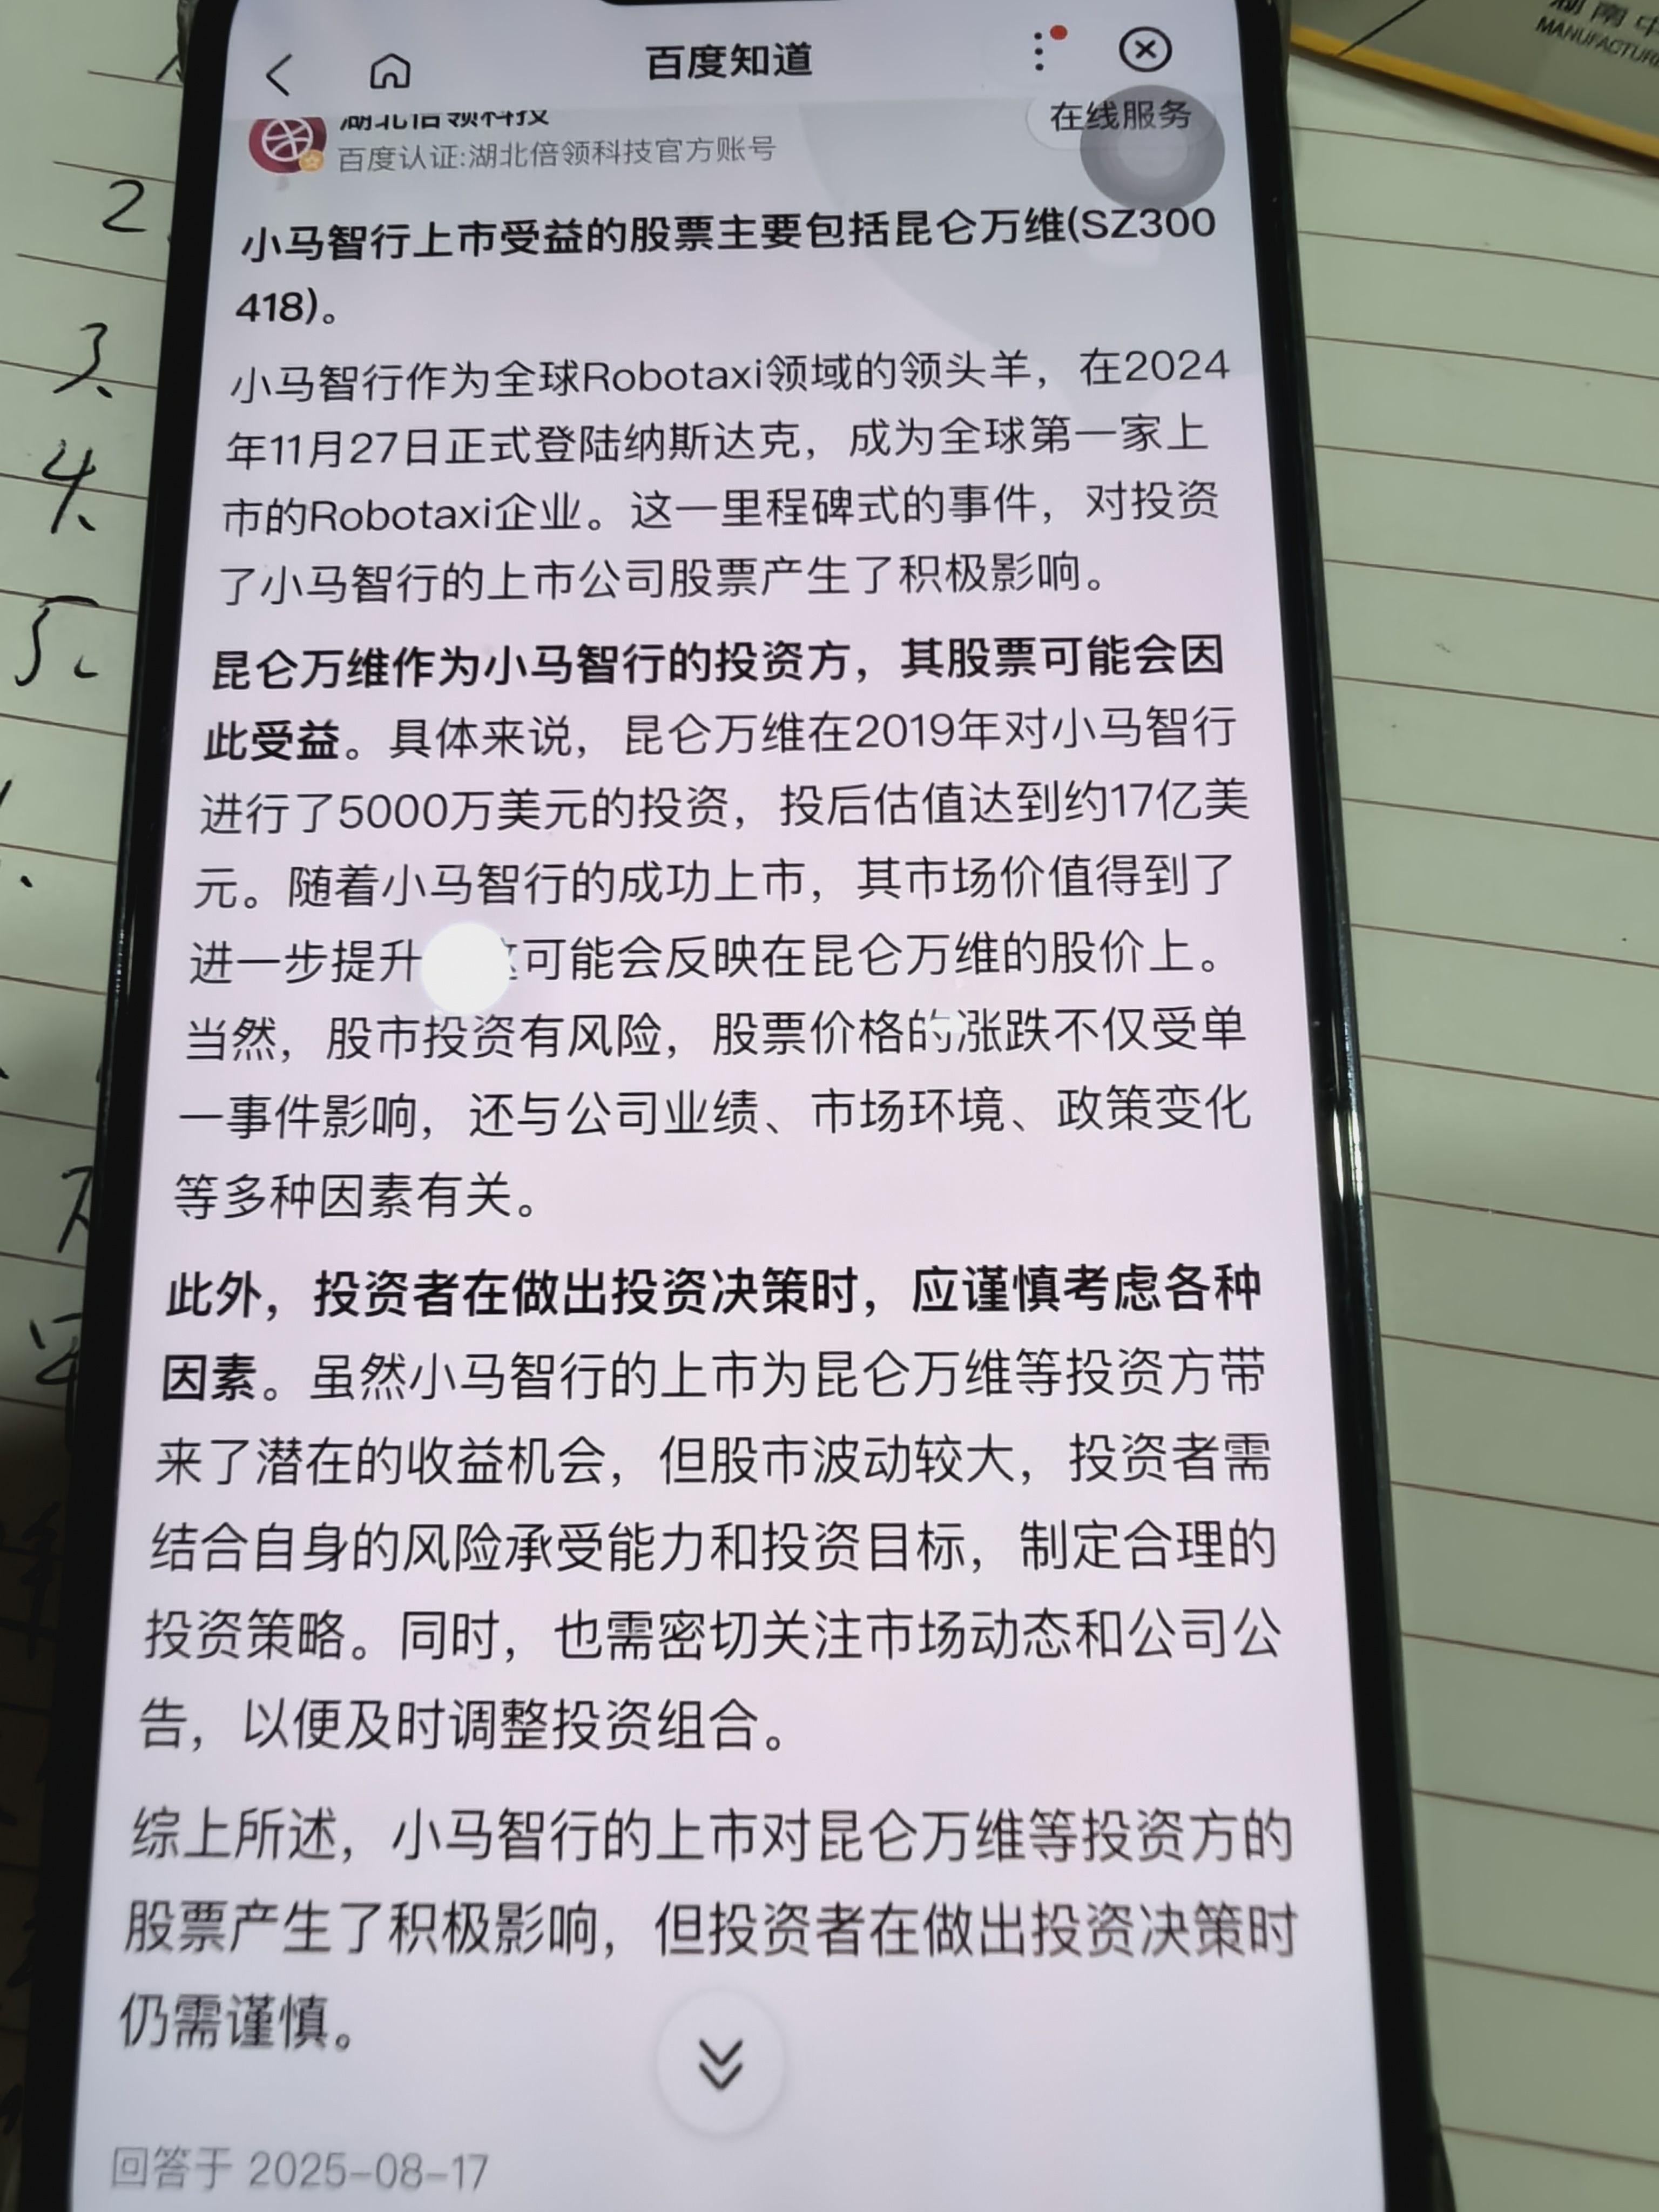 百度知道
湖北倍领科技
在线服务
百度认证:湖北倍领科技官方账号
小马智行上市受益的股票主要包括昆仑万维(SZ300
418)。
小马智行作为全球Robotaxi领域的领头羊，在2024
年11月27日正式登陆纳斯达克，成为全球第一家上
市的Robotaxi企业。这一里程碑式的事件，对投资
了小马智行的上市公司股票产生了积极影响。
昆仑万维作为小马智行的投资方，其股票可能会因
此受益。具体来说，昆仑万维在2019年对小马智行
进行了5000万美元的投资，投后估值达到约17亿美
元。随着小马智行的成功上市，其市场价值得到了
进一步提升 这可能会反映在昆仑万维的股价上。
当然，股市投资有风险，股票价格的涨跌不仅受单
一事件影响，还与公司业绩、市场环境、政策变化
等多种因素有关。
此外，投资者在做出投资决策时，应谨慎考虑各种
因素。虽然小马智行的上市为昆仑万维等投资方带
来了潜在的收益机会，但股市波动较大，投资者需
结合自身的风险承受能力和投资目标，制定合理的
投资策略。同时，也需密切关注市场动态和公司公
告，以便及时调整投资组合。
综上所述，小马智行的上市对昆仑万维等投资方的
股票产生了积极影响，但投资者在做出投资决策时
仍需谨慎。
回答于 2025-08-17
2.
3.
4.
5.
湖南中
MANUFACTUR